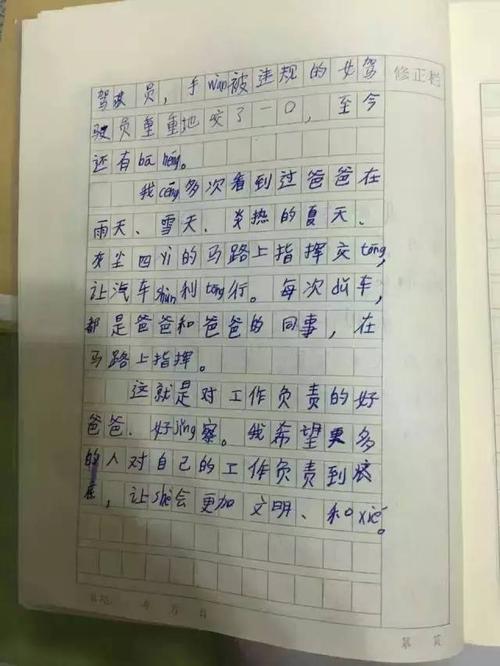 驾驶员，手wàn被违规的女驾 修正栏
驶员重重地咬了一口，至今
还有bā hén。
我céng多次看到过爸爸在
雨天、雪天、炎热的夏天、
灰尘四yì的马路上指挥交tōng，
让汽车shùn利tōng行。每次dǔ车，
都是爸爸和爸爸的同事，在
马路上指挥。
这就是对工作负责的好
爸爸、好jǐng察。我希望更多
的人对自己的工作负责到底
，让shè会更加文明、和xié。
年 月 日
第 页